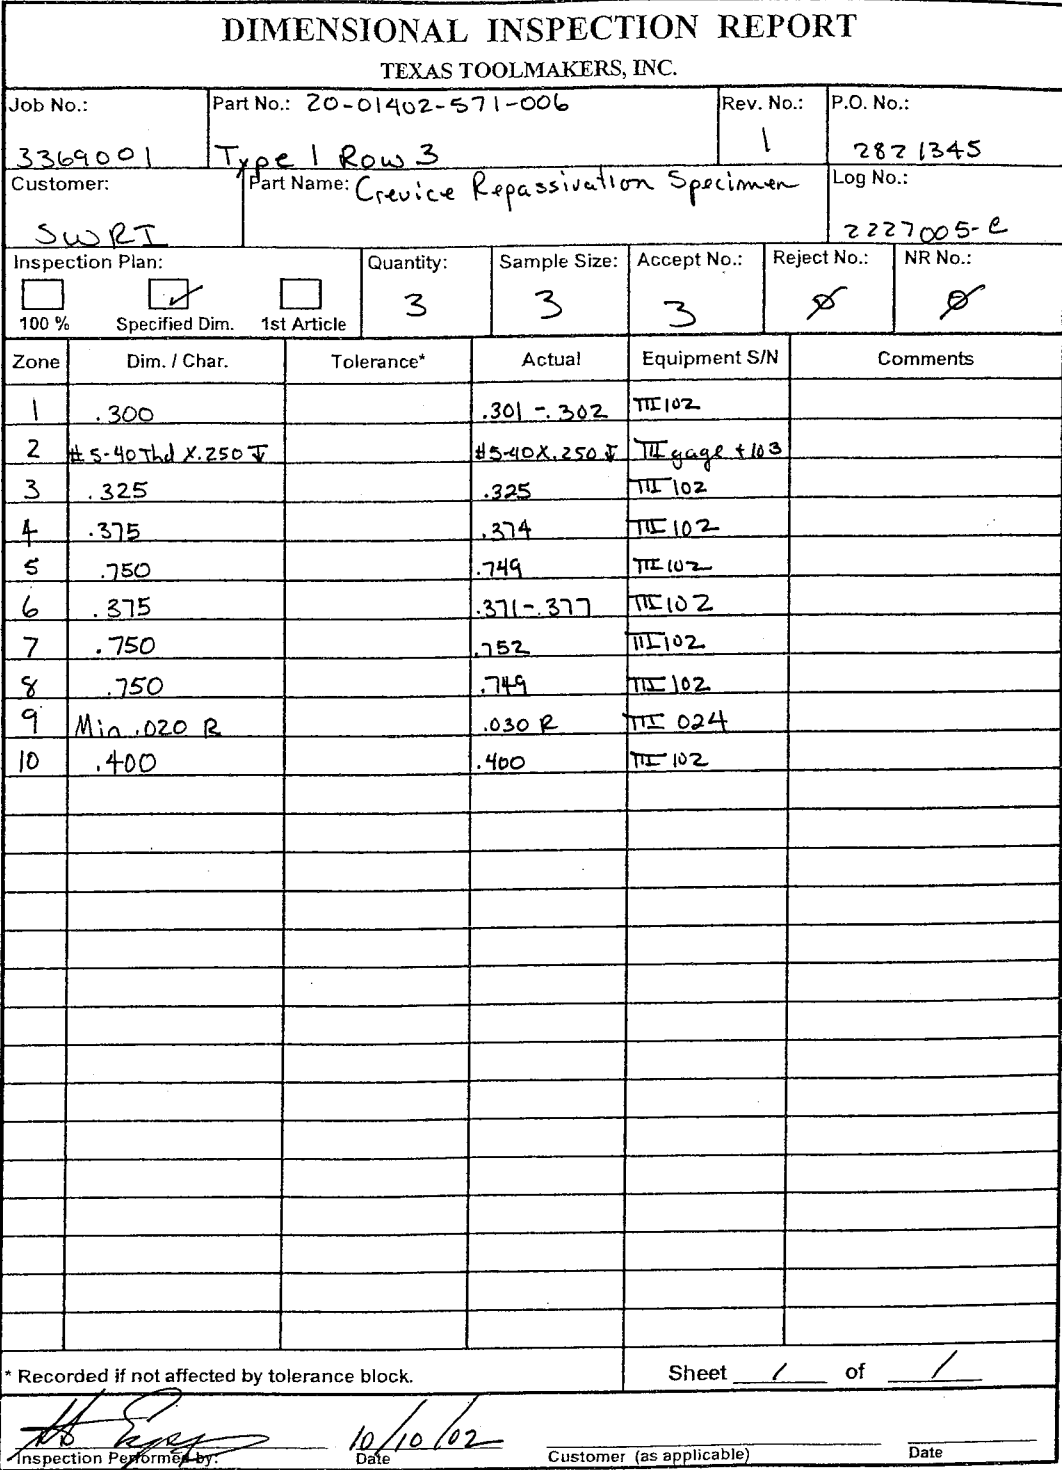 DIMENSIONAL INSPECTION REPORT
TEXAS TOOLMAKERS, INC.
Job No.: Part No.: 20-01402-571-006 Rev. No.: P.O. No.:
3369001 Type 1 Row 3 1 2821345
Customer: Part Name: Crevice Repassivation Specimen Log No.:
SWRI 2227005-C
Inspection Plan: Quantity: Sample Size: Accept No.: Reject No.: NR No.:
✓ 3 3 3 Ø Ø
100 % Specified Dim. 1st Article
Zone Dim. / Char. Tolerance* Actual Equipment S/N Comments
1 .300 .301 - .302 TTI 102
2 #5-40 Thd X .250 ↧ #5-40 X .250 ↧ TTI gage + 103
3 .325 .325 TTI 102
4 .375 .374 TTI 102
5 .750 .749 TTI 102
6 .375 .371 - .377 TTI 102
7 .750 .752 TTI 102
8 .750 .749 TTI 102
9 Min .020 R .030 R TTI 024
10 .400 .400 TTI 102
* Recorded if not affected by tolerance block. Sheet 1 of 1
10/10/02
Inspection Performed by: Date Customer (as applicable) Date